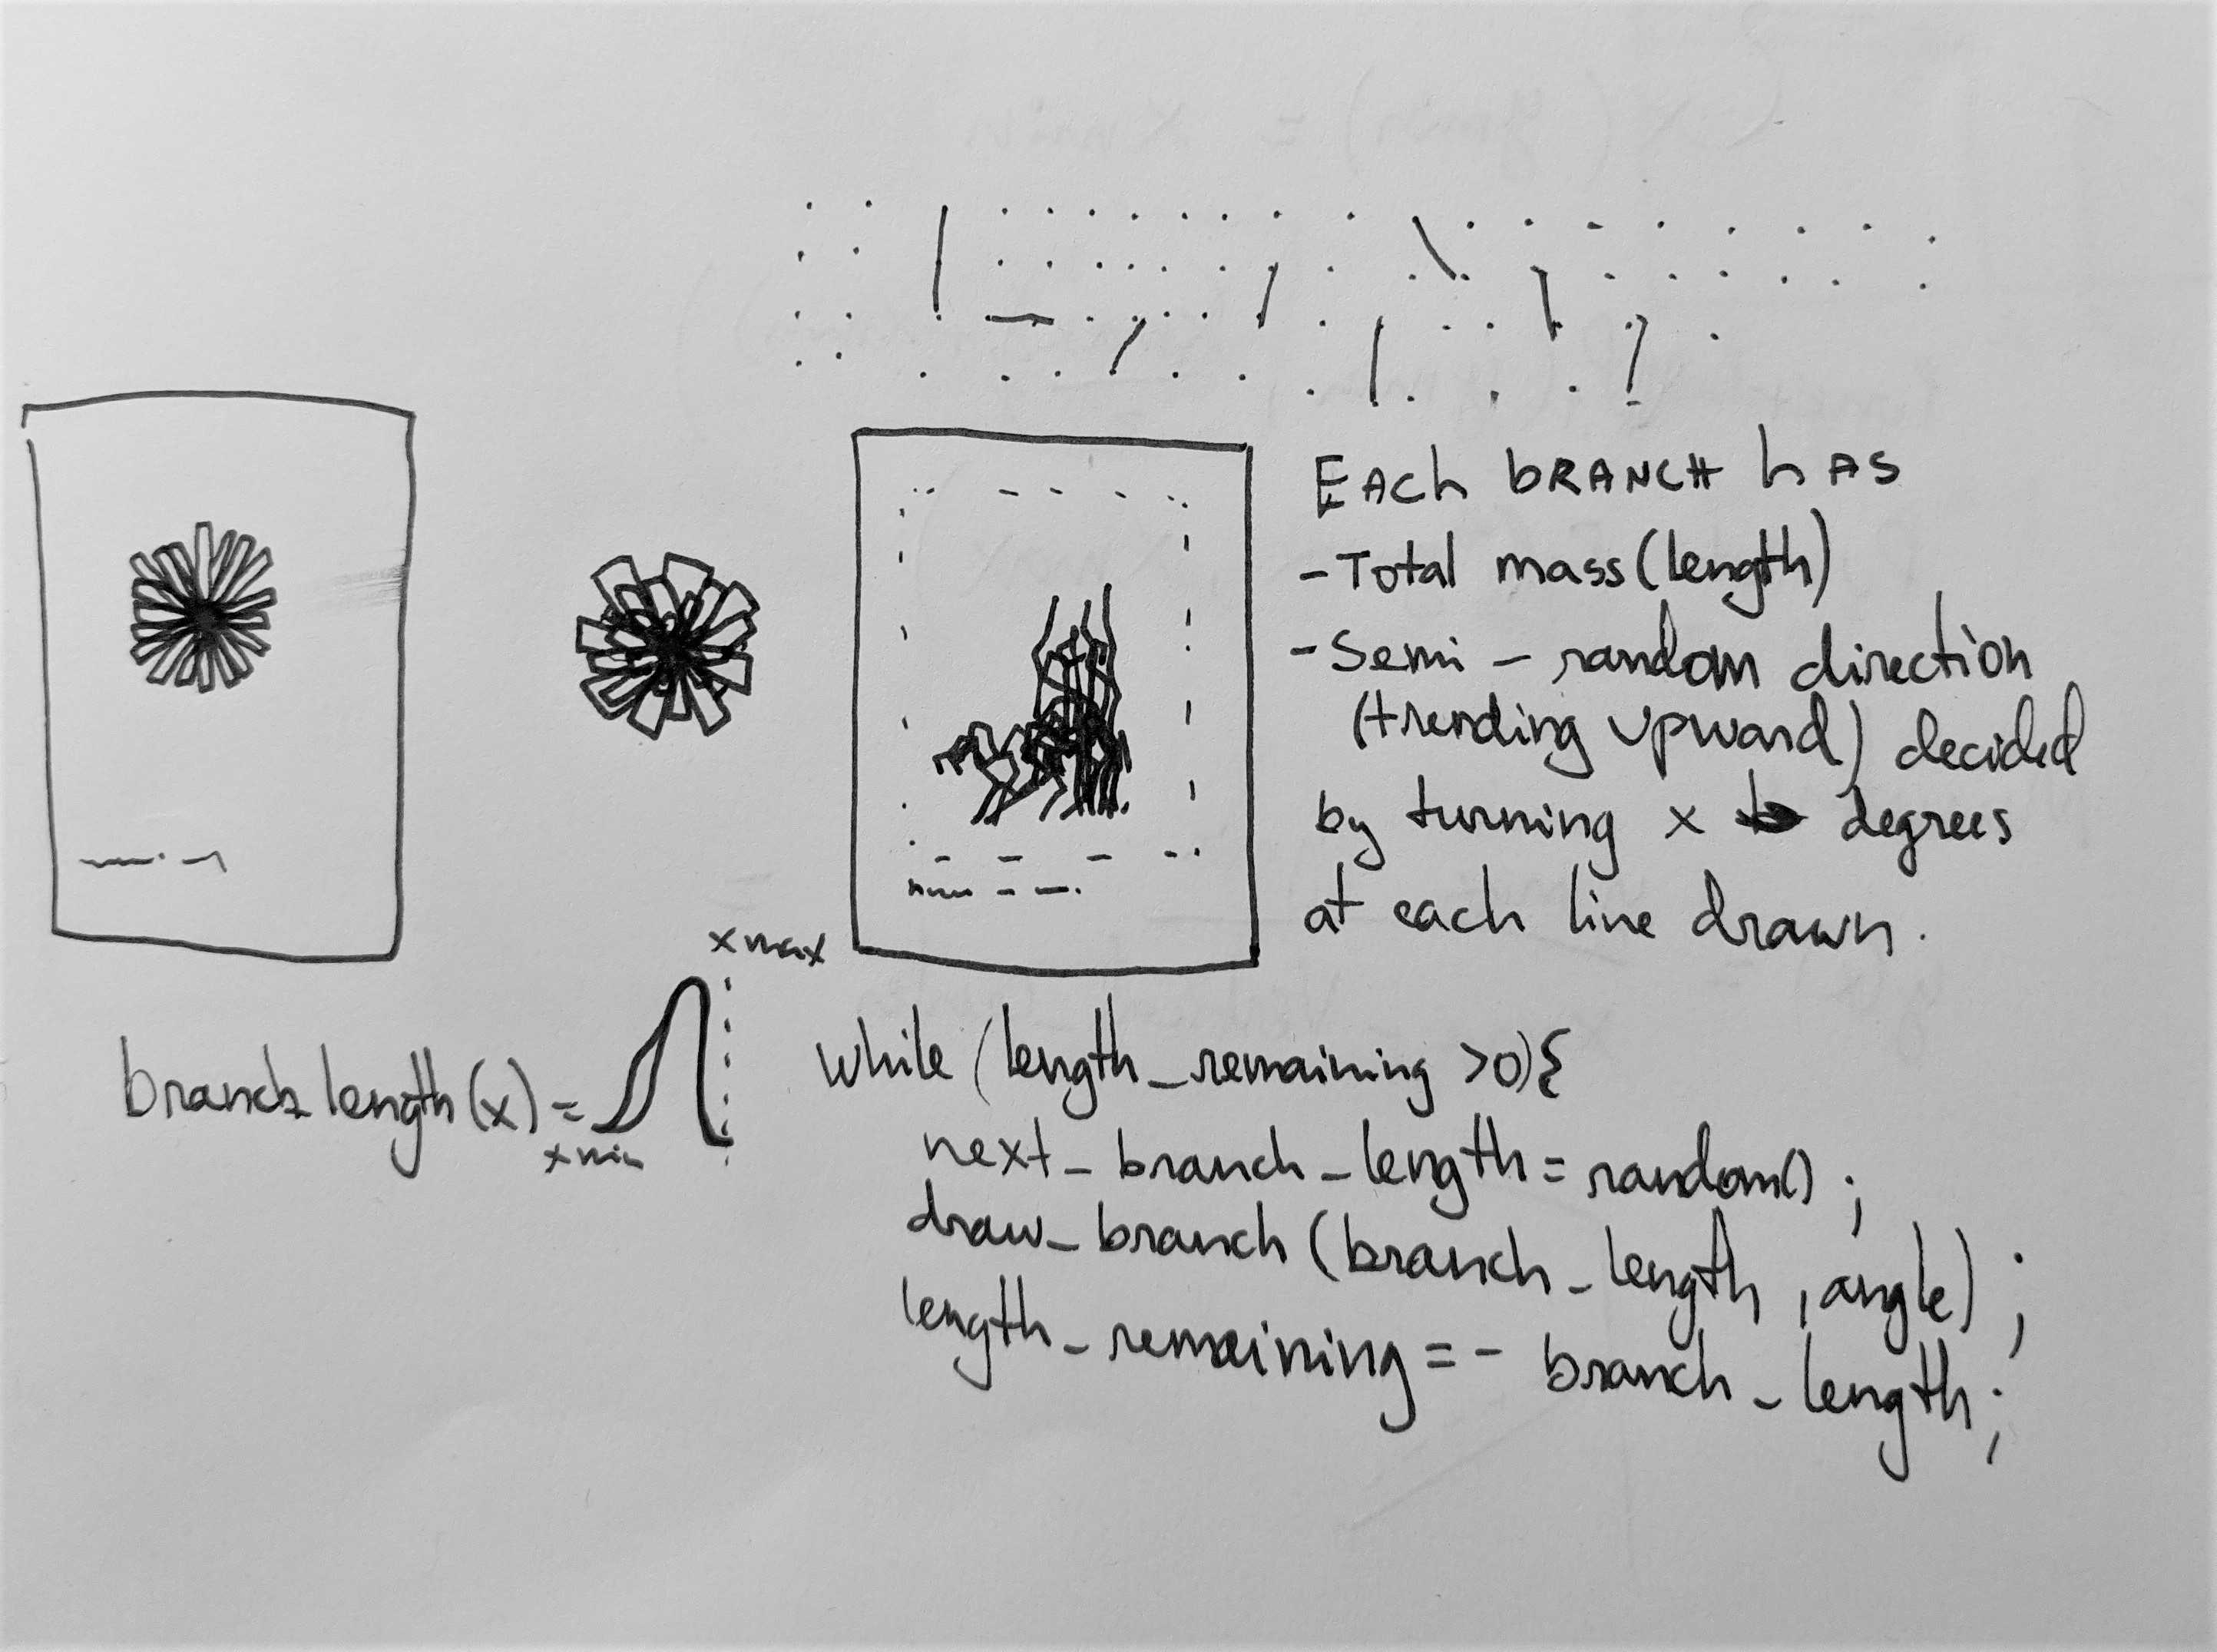 EACh bRANCH hAS
- Total mass (length)
- Semi - random direction
(trending upward) decided
by turning x degrees
at each line drawn.
x max
branch length (x) =
x min
while (length_remaining >0){
next_branch_length = random() ;
draw_branch (branch_length , angle) ;
length_remaining = - branch_length;